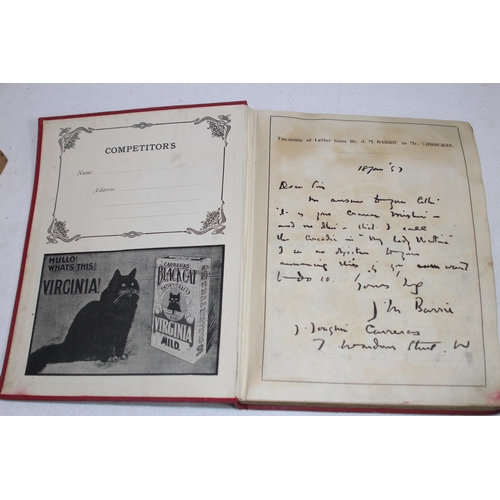 COMPETITOR'S
Name
Address
HULLO!
WHATS THIS?
VIRGINIA!
CARRERAS
BLACK CAT
CIGARETTES
VIRGINIA
MILD.
Facsimile of Letter from Dr. J. M. BARRIE to Mr. CARRERAS.
18 Jan '97
Dear Sir
In answer to your letter
it is your Craven mixture
and no other that I call
the Arcadia in "My Lady Nicotine"
I see no objection to your
announcing this if you want
to do so.
Yours truly
J M Barrie
J. Joaquin Carreras
7 Wardour Street W